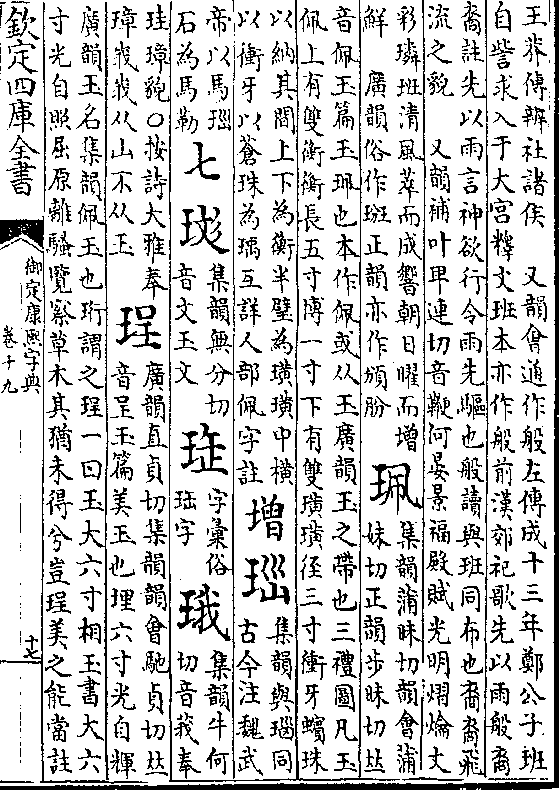 王莽傳辦社諸侯　又韻會通作般左傳成十三年鄭公子班
自訾求入于大宮釋文班本亦作般前漢郊祀歌先以雨般裔
裔註先以雨言神欲行令雨先驅也般讀與班同布也裔裔飛
流之貌　又韻補叶卑連切音鞭何晏景福殿賦光明熠爚文
彩璘班清風萃而成響朝日曜而增
鮮　廣韻俗作斑正韻亦作頒朌
珮
集韻蒲昧切韻會蒲
妹切正韻步昧切𠀤
音佩玉篇玉珮也本作佩或从玉廣韻玉之帶也三禮圖凡玉
佩上有雙衡衡長五寸博一寸下有雙璜璜徑三寸衝牙蠙珠
以納其間上下為衡半璧為璜璜中橫
以衝牙以蒼珠為瑀互詳人部佩字註
增
𤦏
集韻與瑙同
古今注魏武
帝以馬瑙
石為馬勒
七
珳
集韻無分切
音文玉文
𤤴
字彙俗
珤字
珴
集韻牛何
切音莪奉
珪璋貌〇按詩大雅奉
璋峩峩从山不从玉
珵
廣韻直貞切集韻韻會馳貞切𠀤
音呈玉篇美玉也埋六寸光自輝
廣韻玉名集韻佩玉也珩謂之珵一曰玉大六寸相玉書大六
寸光自照屈原離騷覽察草木其猶未得兮豈珵美之能當註
欽定四庫全書
御定康熙字典
卷十九
十七